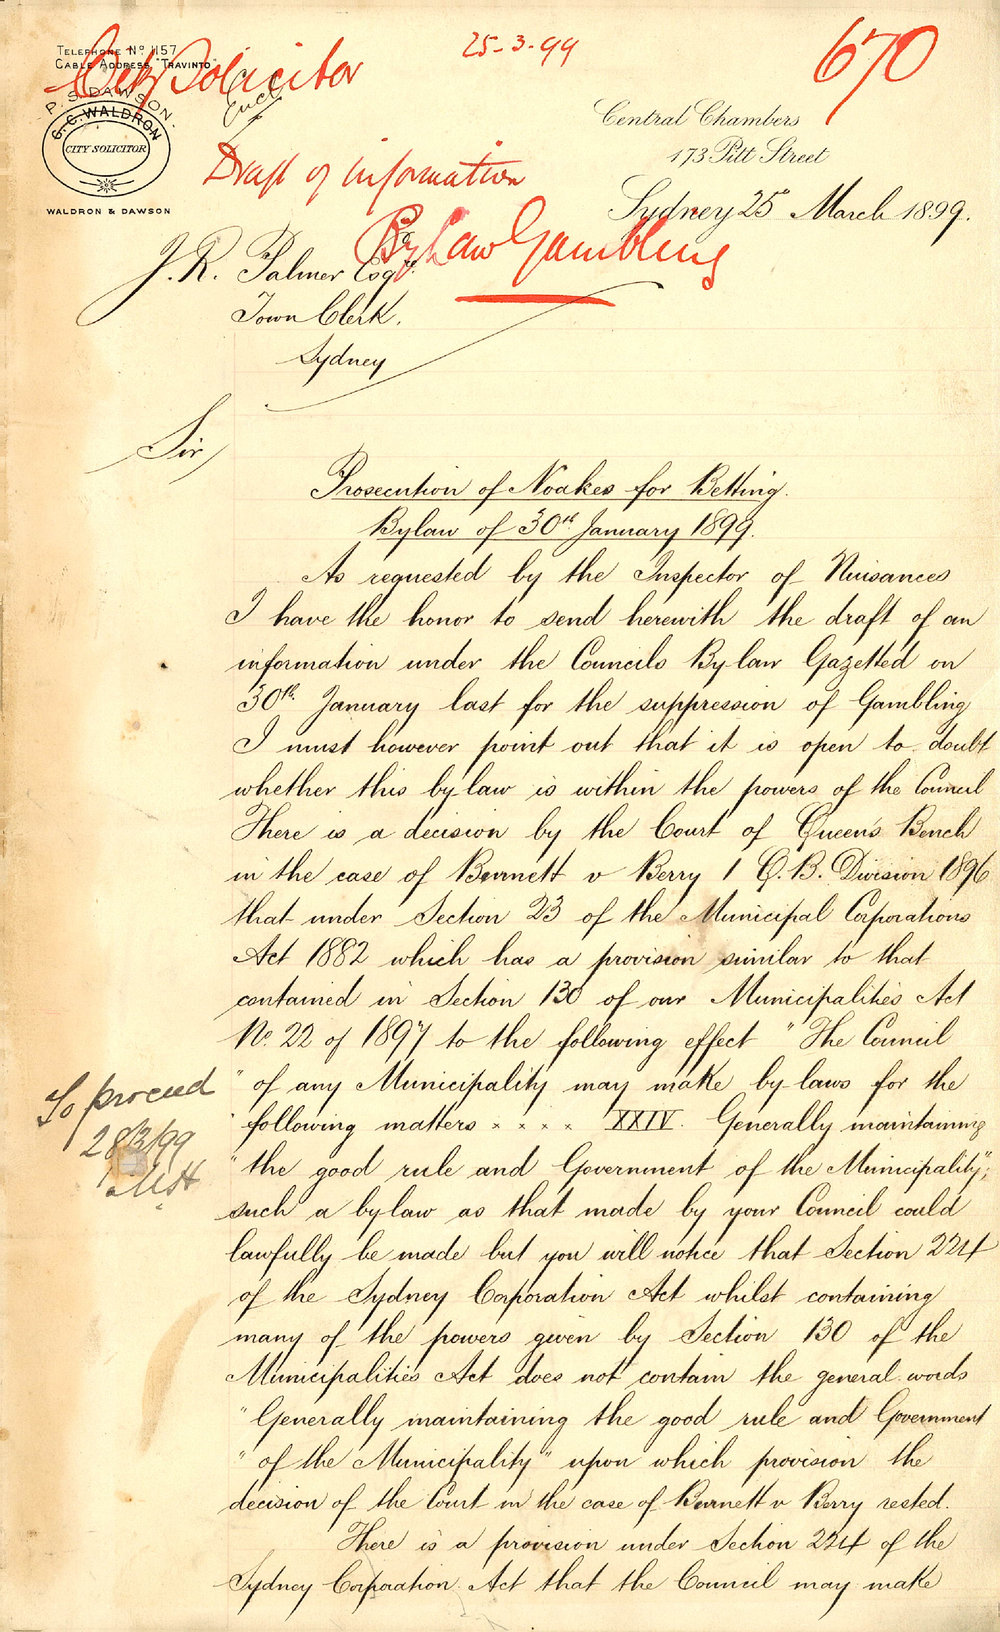 Telephone No 1157
Cable Address, "Travinto"
City Solicitor
Encl
25-3-99
670
P. S. DAWSON.
C. C. WALDRON
CITY SOLICITOR
WALDRON & DAWSON
Central Chambers
173 Pitt Street
Sydney 25 March 1899.
Draft of information
By Law Gambling
J. R. Palmer Esqr.
Town Clerk.
Sydney
Sir
Prosecution of Noakes for Betting.
Bylaw of 30th January 1899.
As requested by the Inspector of Nuisances
I have the honor to send herewith the draft of an
information under the Councils By-law Gazetted on
30th January last for the suppression of Gambling
I must however point out that it is open to doubt
whether this by law is within the powers of the Council
There is a decision by the Court of Queen's Bench
in the case of Burnett v Berry 1 Q. B. Division 1896
that under Section 23 of the Municipal Corporations
Act 1882 which has a provision similar to that
contained in Section 130 of our Municipalities Act
No. 22 of 1897 to the following effect "The Council
"of any Municipality may make by-laws for the
"following matters × × × × XXIV. Generally maintaining
"the good rule and Government of the Municipality";
such a bylaw as that made by your Council could
lawfully be made but you will notice that Section 224
of the Sydney Corporation Act whilst containing
many of the powers given by Section 130 of the
Municipalities Act does not contain the general words
"Generally maintaining the good rule and Government
"of the Municipality" upon which provision the
decision of the Court in the case of Burnett v Berry rested.
There is a provision under Section 224 of the
Sydney Corporation Act that the Council may make
To proceed
28/3/99